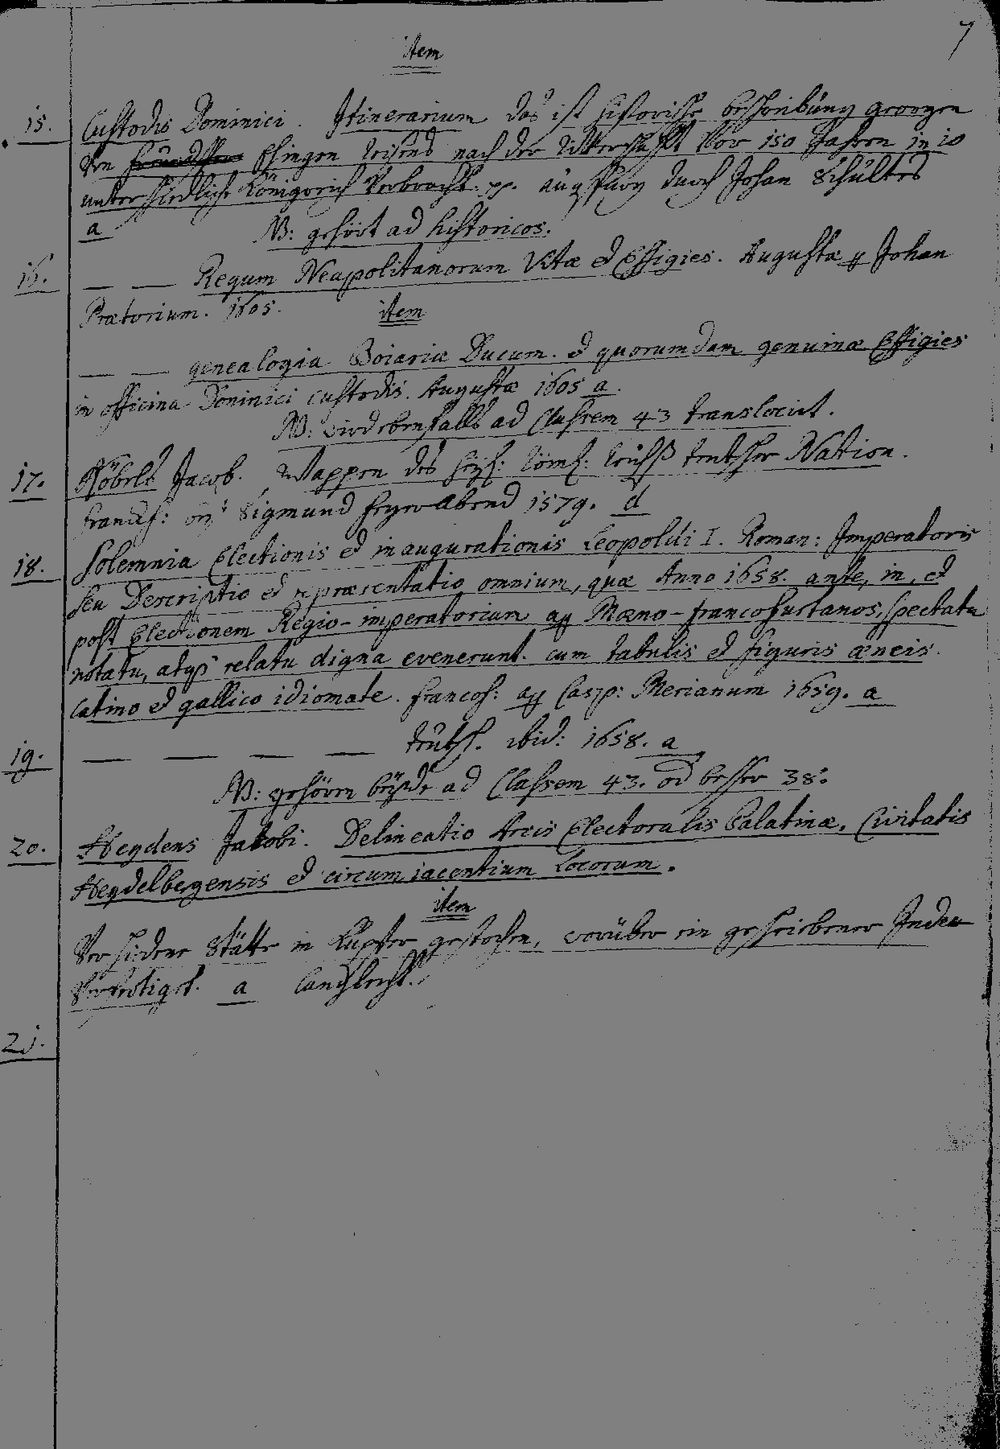 7
item
15. Custodis Dominici. Itinerarium das ist historische beschreibung Georgen
von Ehingen reisens nach der Ritterschafft Vor 150 Jahren in 10
unterschiedliche Königreich Verbracht. pp. Augspurg durch Johan Schultes
a NB: gehört ad historicos.
16. — — Regum Neapolitanorum Vitæ et Effigies. Augustæ Johan
Prætorium. 1605. item
— — genealogia Boiariæ Ducum. et quorumdam genuinæ Effigies
in officina Dominici Custodis. Augustæ 1605 a.
NB: wird ebenfalls ad Classem 43 translocirt.
17. Köbels Jacob. Wappen des heyl: Röm: Reichs teutscher Nation.
Francf: Sigmund Feyerabend 1579. d
18. Solemnia Electionis et inaugurationis Leopoldi I. Roman: Imperatoris
seu Descriptio et repræsentatio omnium, quæ Anno 1658. ante, in, et
post Electionem Regio-imperatoriam Mæno-francofurtanos, spectatu
notatu, atq relatu digna evenerunt. cum tabulis et figuris æneis.
Latino et gallico idiomate. Francof: Casp: Merianum 1659. a
19. — — — — teutsch. ibid: 1658. a
NB: gehören beyde ad Classem 43. od besser 38.
20. Heydens Jakobi. Delineatio Arcis Electoralis Palatinæ, Civitatis
Heydelbergensis et circumiacentium Locorum.
item
Verschiedene Stätte in Kupfer gestochen, worüber ein geschriebener Index
Verfertiget. a
21.